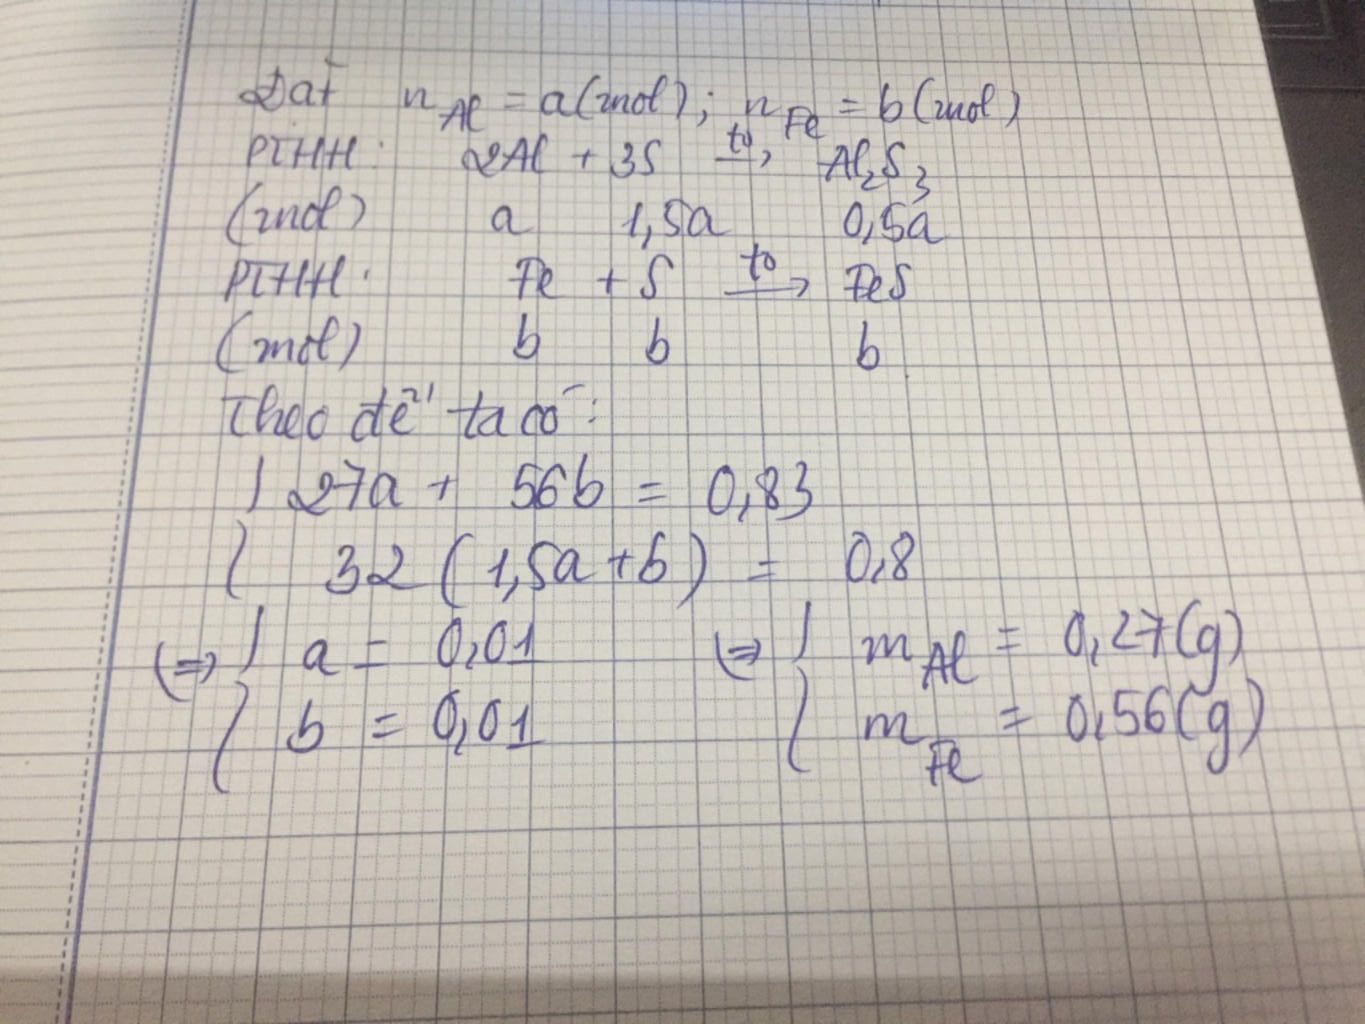 Đặt n Al = a (mol); n Fe = b (mol)
PTHH: 2Al + 3S t° → Al2S3
(mol) a 1,5a 0,5a
PTHH: Fe + S t° → FeS
(mol) b b b
Theo đề ta có:
{ 27a + 56b = 0,83
32 (1,5a + b) = 0,8
(=>) { a = 0,01 (=>) { m Al = 0,27 (g)
b = 0,01 m Fe = 0,56 (g)